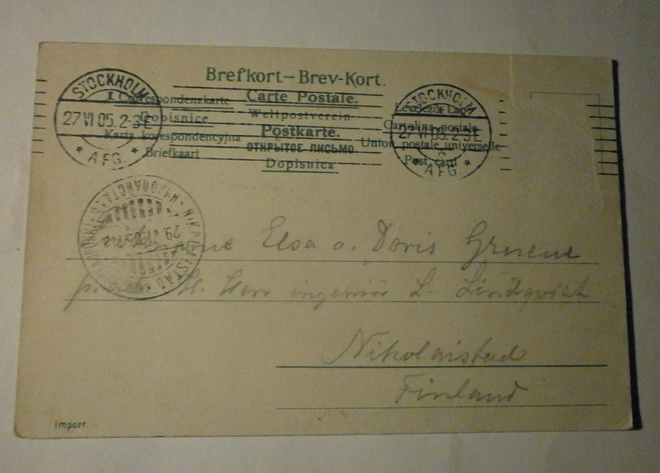 Brefkort—Brev-Kort.
Correspondenzkarte Carte Postale. Levelező-Lap
Dopisnice Weltpostverein Cartolina postale
Karta korespondencyjna Postkarte. Union postale universelle
Briefkaart ОТКРЫТОЕ ПИСЬМО Post card
Dopisnica
STOCKHOLM
27 VI 05. 2-3E
* AFG. *
STOCKHOLM
27 VI 05. 2-3E
* AFG. *
NIKOLAISTAD
29. VI. 05
Elsa o. Doris
Herr ingeniör L. Lindqvist
Nikolaistad
Finland
Import.